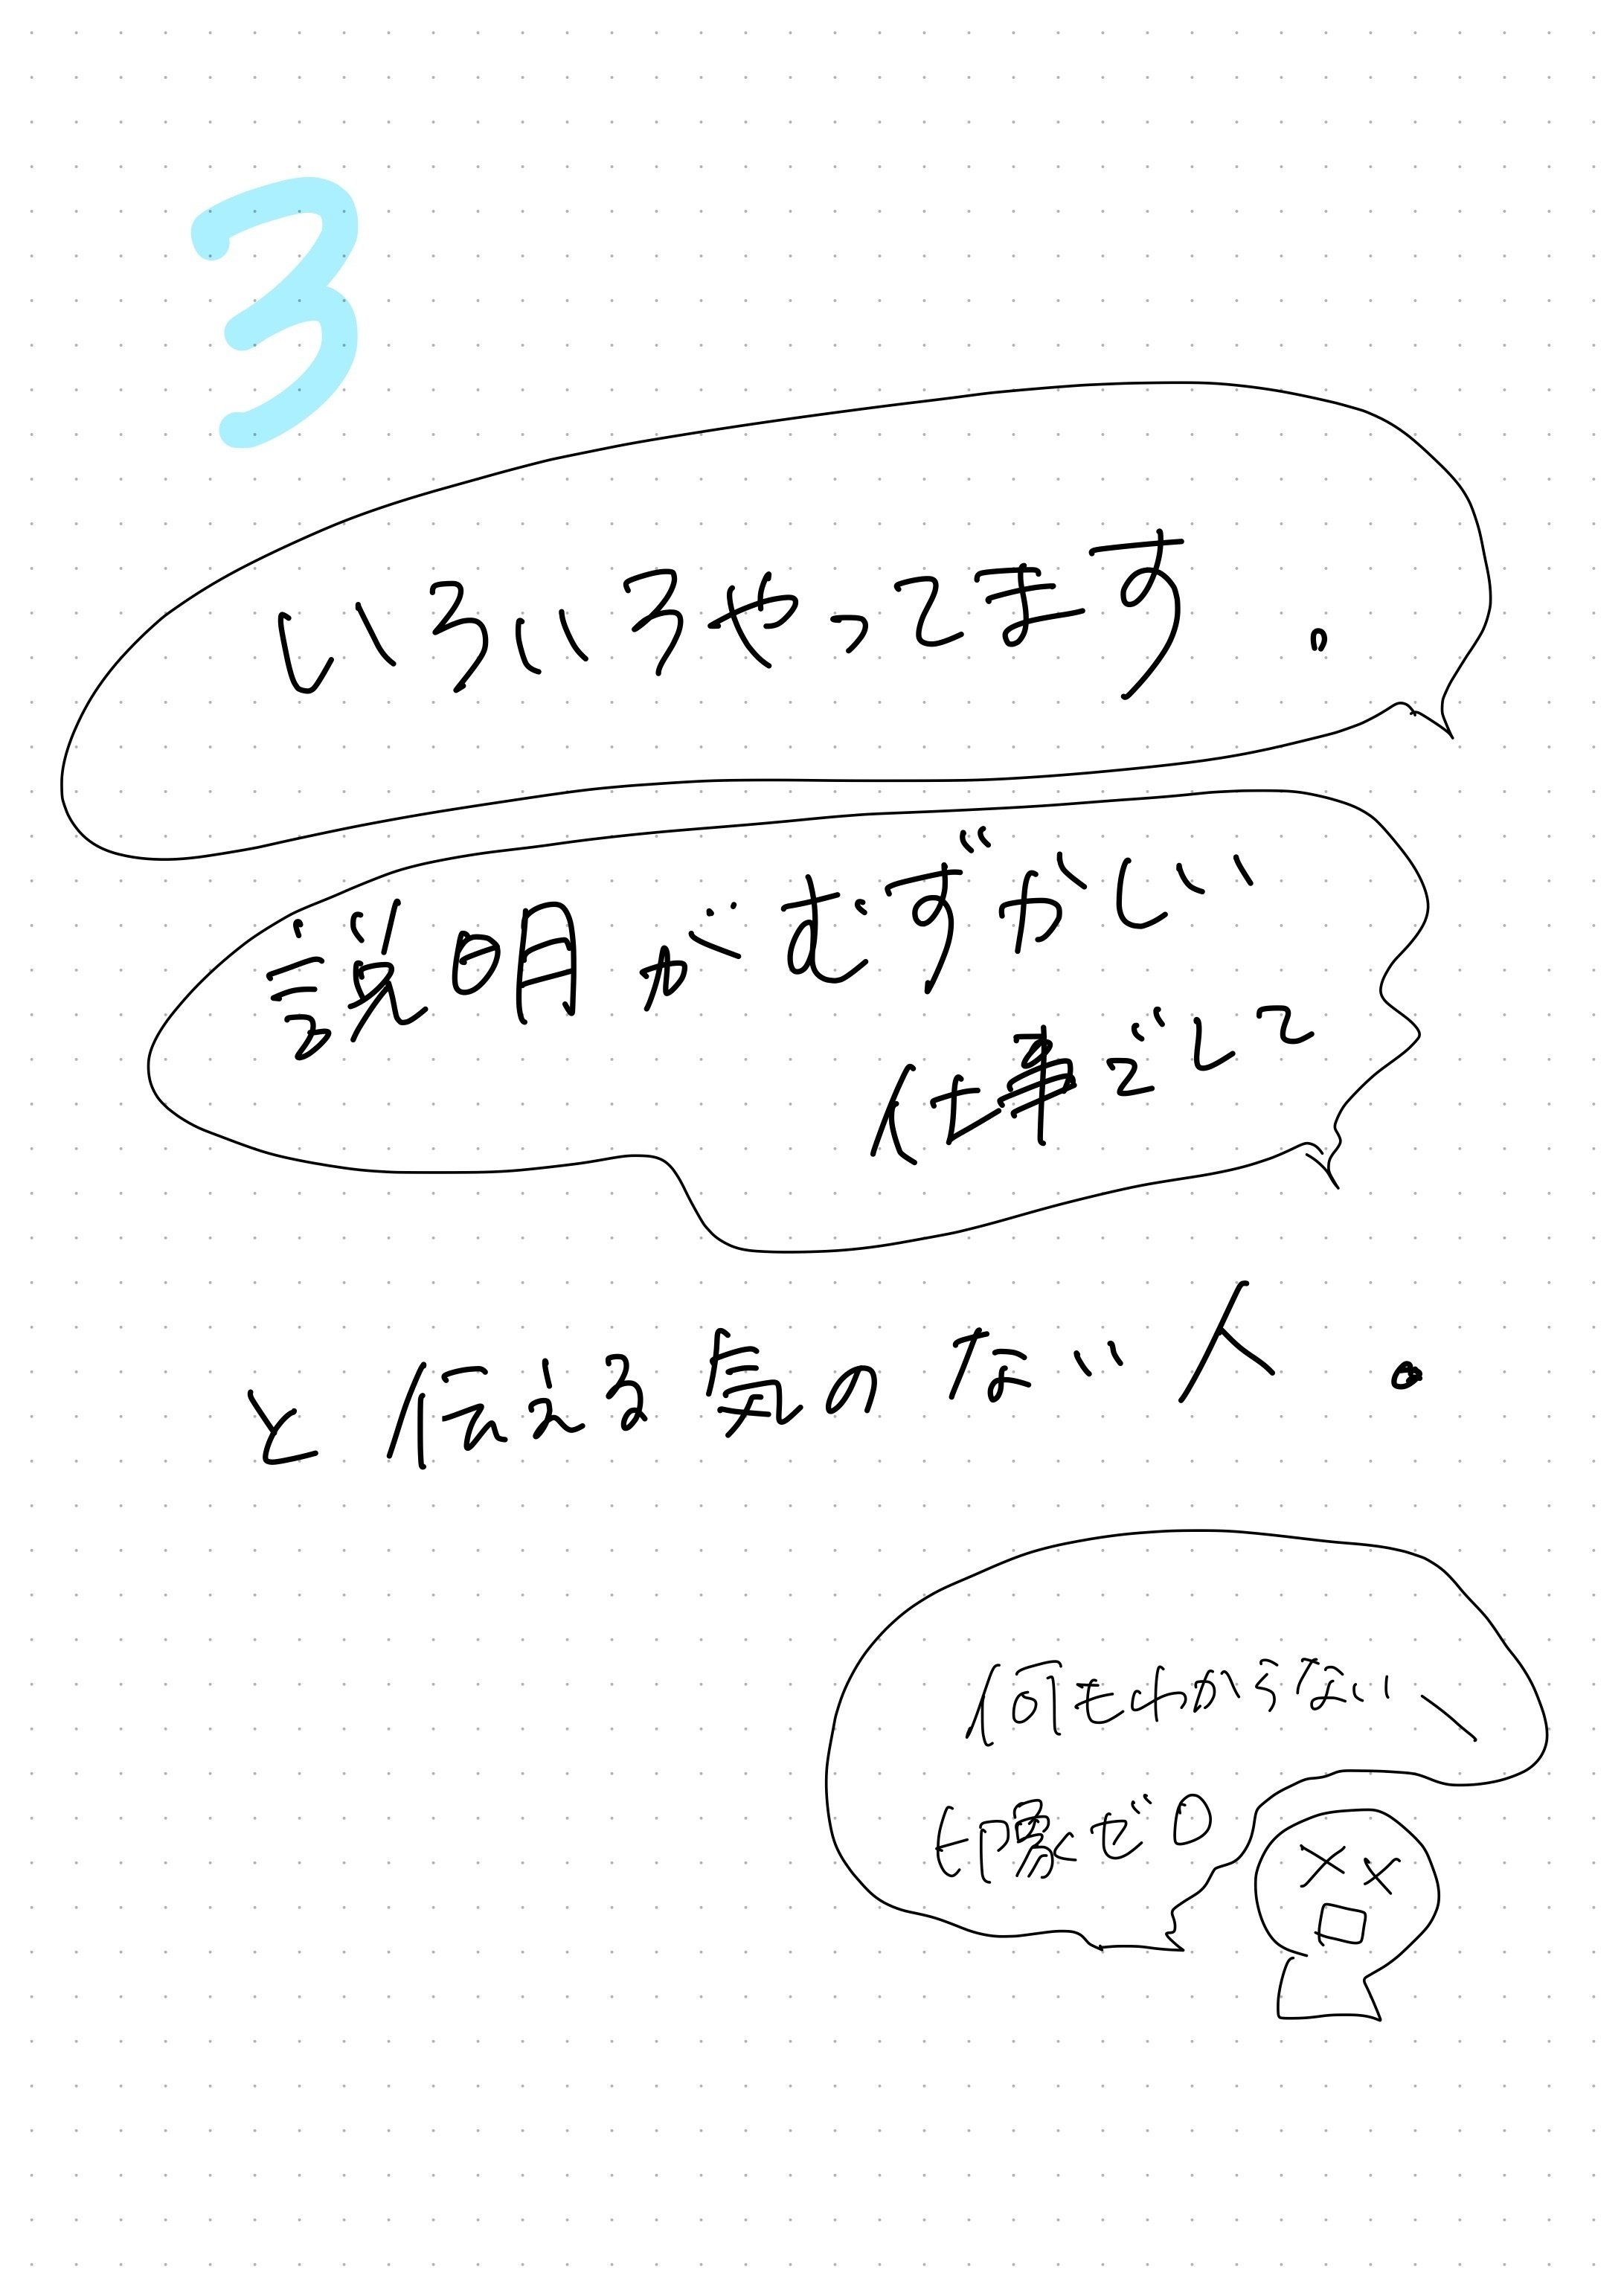 3
いろいろやってます。
説明がむずかしい
仕事でして
と伝える気のない人。
何もわからない、
印象ゼロ